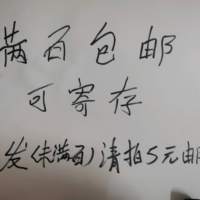 满百包邮
可寄存
发(未满百)清拍5元邮